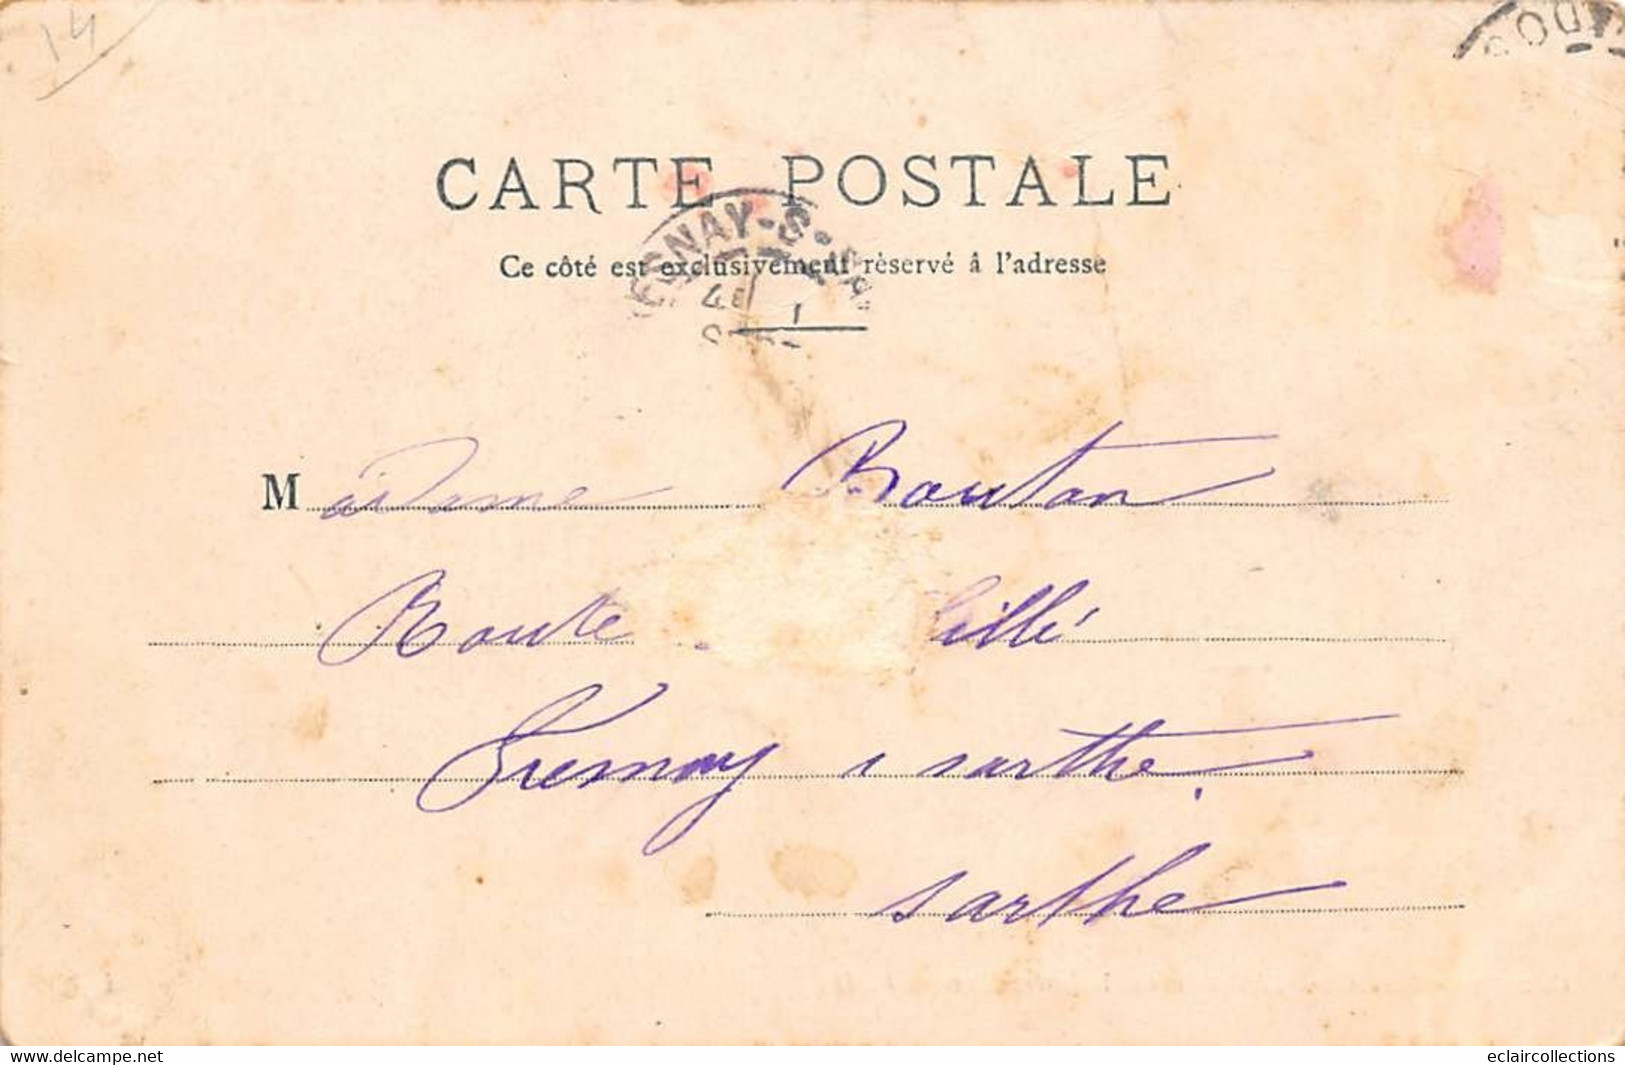 14
CARTE POSTALE
Ce côté est exclusivement réservé à l'adresse
NAY-S-
Madame Boutan
Route illé
Fresnay s sarthe
sarthe
www.delcampe.net
eclaircollections